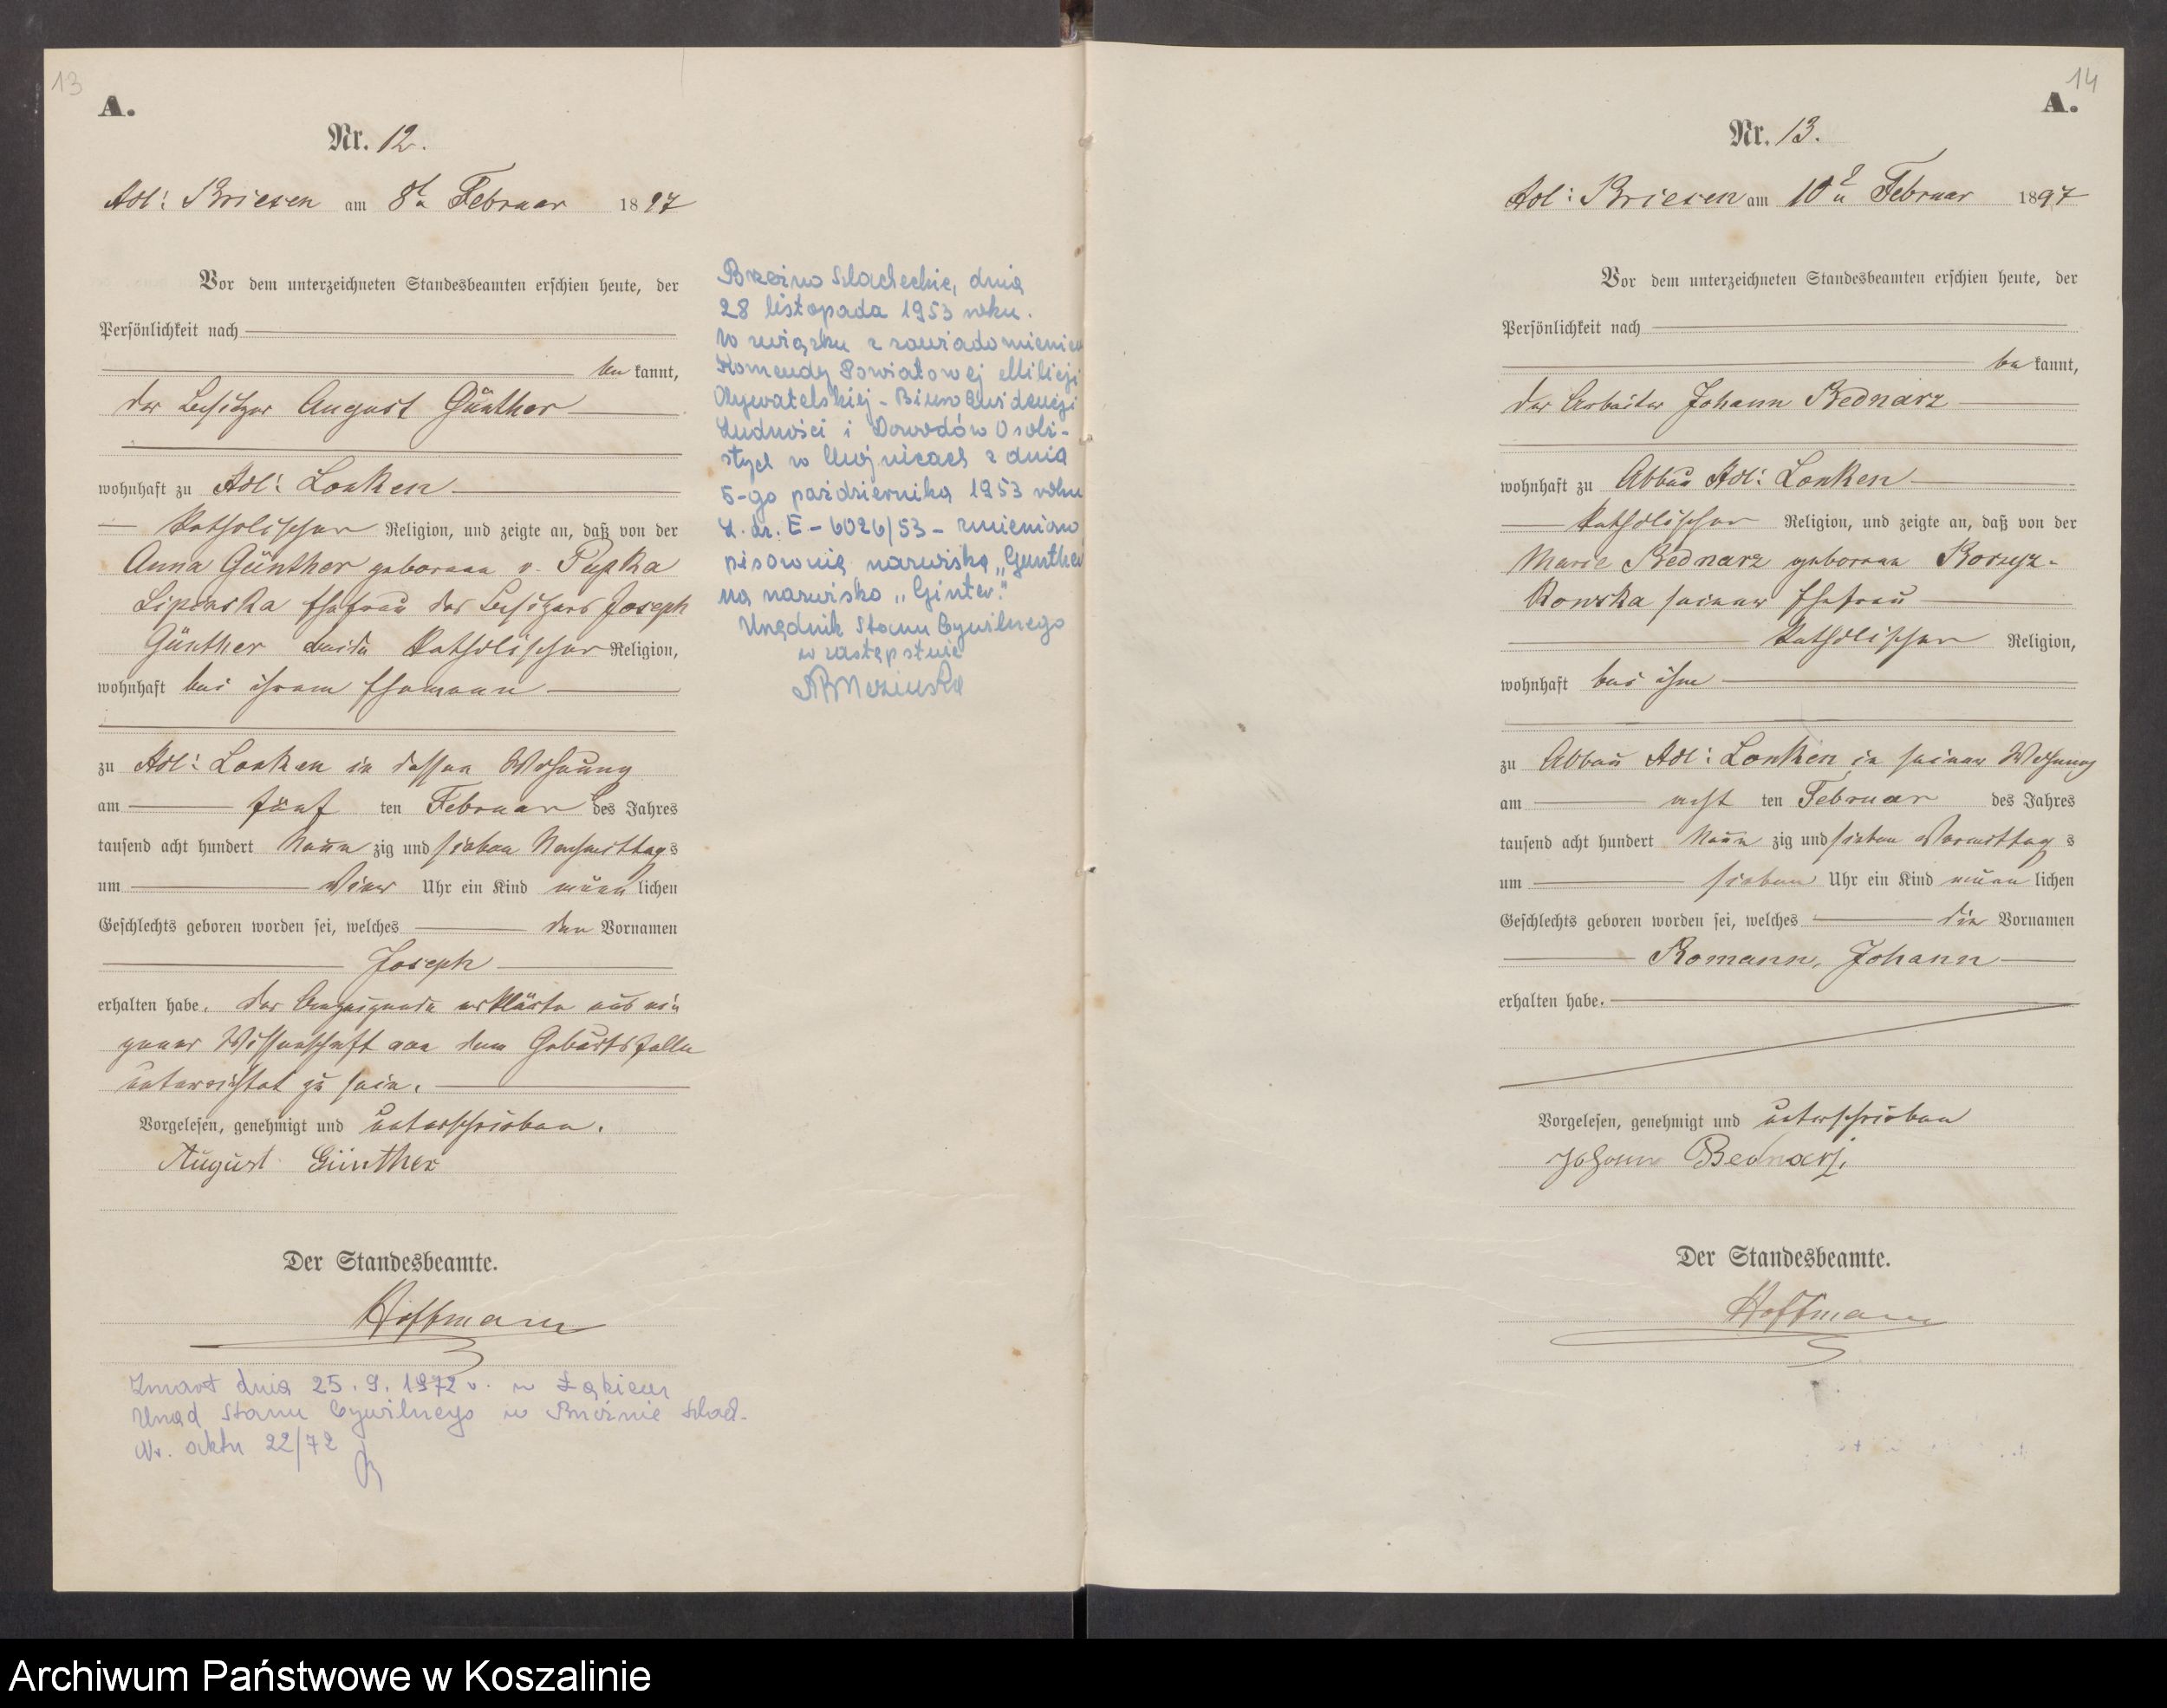 13
A.
Nr. 12.
Adl: Briesen am 8t Februar 1897
Vor dem unterzeichneten Standesbeamten erschien heute, der
Persönlichkeit nach
be kannt,
der Besitzer August Günther
wohnhaft zu Adl: Lonken
katholischer Religion, und zeigte an, daß von der
Anna Günther geborenen v. Pupka
Lipinska Ehefrau des Besitzers Joseph
Günther beide katholischer Religion,
wohnhaft bei ihrem Ehemann
zu Adl: Lonken in dessen Wohnung
am fünf ten Februar des Jahres
tausend acht hundert Neun zig und sieben Nachmittags
um Vier Uhr ein Kind männ lichen
Geschlechts geboren worden sei, welches den Vornamen
Joseph
erhalten habe. der Anzeigende erklärte aus ei
gener Wissenschaft von dem Geburtsfalle
unterrichtet zu sein.
Vorgelesen, genehmigt und unterschrieben.
August Günther
Der Standesbeamte.
Hoffmann
Zmarł dnia 25.9.1972 r. w Łąkiem
Urząd Stanu Cywilnego w Brzeźnie Szlach.
Nr. aktu 22/72
Brzeźno Szlacheckie, dnia
28 listopada 1953 roku.
W związku z zawiadomieniem
Komendy Powiatowej Milicji
Obywatelskiej - Biuro Ewidencji
Ludności i Dowodów Osobi-
stych w Chojnicach z dnia
5-go października 1953 roku
L. dz. E - 6026/53 - zmieniono
pisownię nazwiska „Gunther"
na nazwisko „Ginter."
Urzędnik Stanu Cywilnego
w zastępstwie
14
A.
Nr. 13.
Adl: Briesen am 10t Februar 1897
Vor dem unterzeichneten Standesbeamten erschien heute, der
Persönlichkeit nach
be kannt,
der Arbeiter Johann Bednarz
wohnhaft zu Abbau Adl: Lonken
katholischer Religion, und zeigte an, daß von der
Marie Bednarz geborenen Korzysz-
kowska seiner Ehefrau
katholischer Religion,
wohnhaft bei ihm
zu Abbau Adl: Lonken in seiner Wohnung
am acht ten Februar des Jahres
tausend acht hundert Neun zig und sieben Vormittag s
um sieben Uhr ein Kind männ lichen
Geschlechts geboren worden sei, welches die Vornamen
Romann, Johann
erhalten habe.
Vorgelesen, genehmigt und unterschrieben
Johann Bednarz.
Der Standesbeamte.
Hoffmann
Archiwum Państwowe w Koszalinie